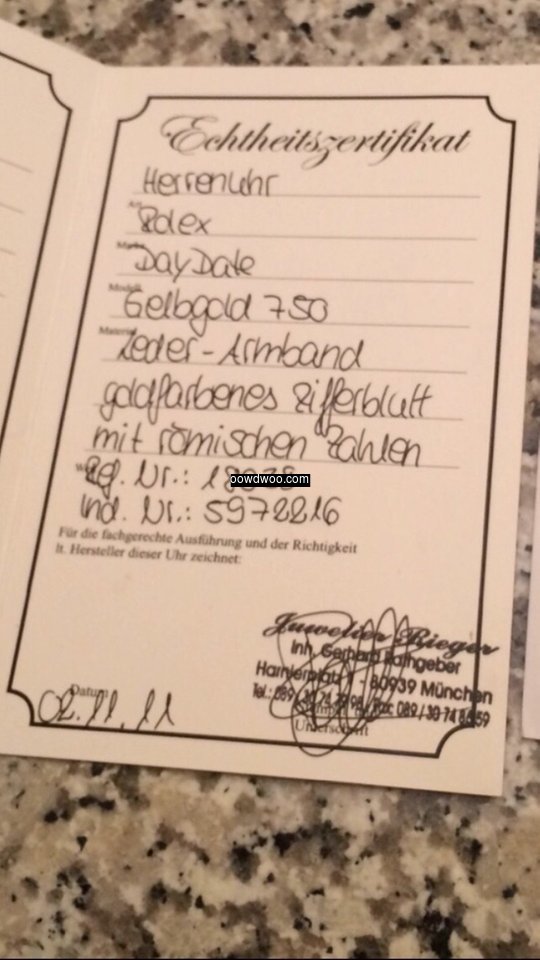 Echtheitszertifikat
Herrenuhr
Rolex
DayDate
Gelbgold 750
Material
Leder-Armband
goldfarbenes Zifferblatt
mit römischen Zahlen
Ref. Nr.: 18038
oowdwoo.com
Ind. Nr.: 5972216
Für die fachgerechte Ausführung und der Richtigkeit
lt. Hersteller dieser Uhr zeichnet:
Juwelier Rieger
Inh. Gerhard Rathgeber
Harnierplatz 1 - 80939 München
Tel.: 089 / 30 74 Fax: 089 / 30 74
Datum
02.11.11
Unterschrift